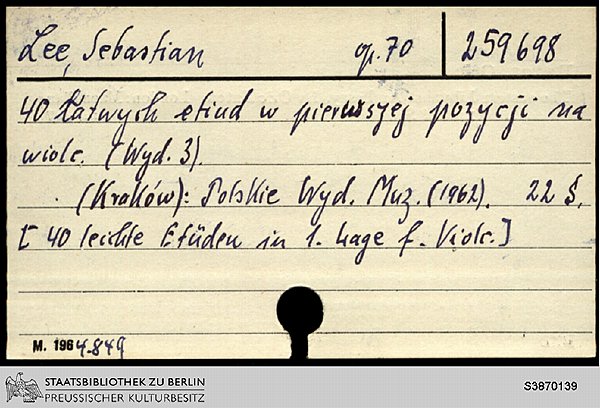 Lee, Sebastian op. 70 259698
40 łatwych etiud w pierwszej pozycji na
wiolc. (Wyd. 3).
(Kraków): Polskie Wyd. Muz. (1962). 22 S.
[40 leichte Etüden in 1. Lage f. Violc.]
M. 1964.849
STAATSBIBLIOTHEK ZU BERLIN
PREUSSISCHER KULTURBESITZ
S3870139